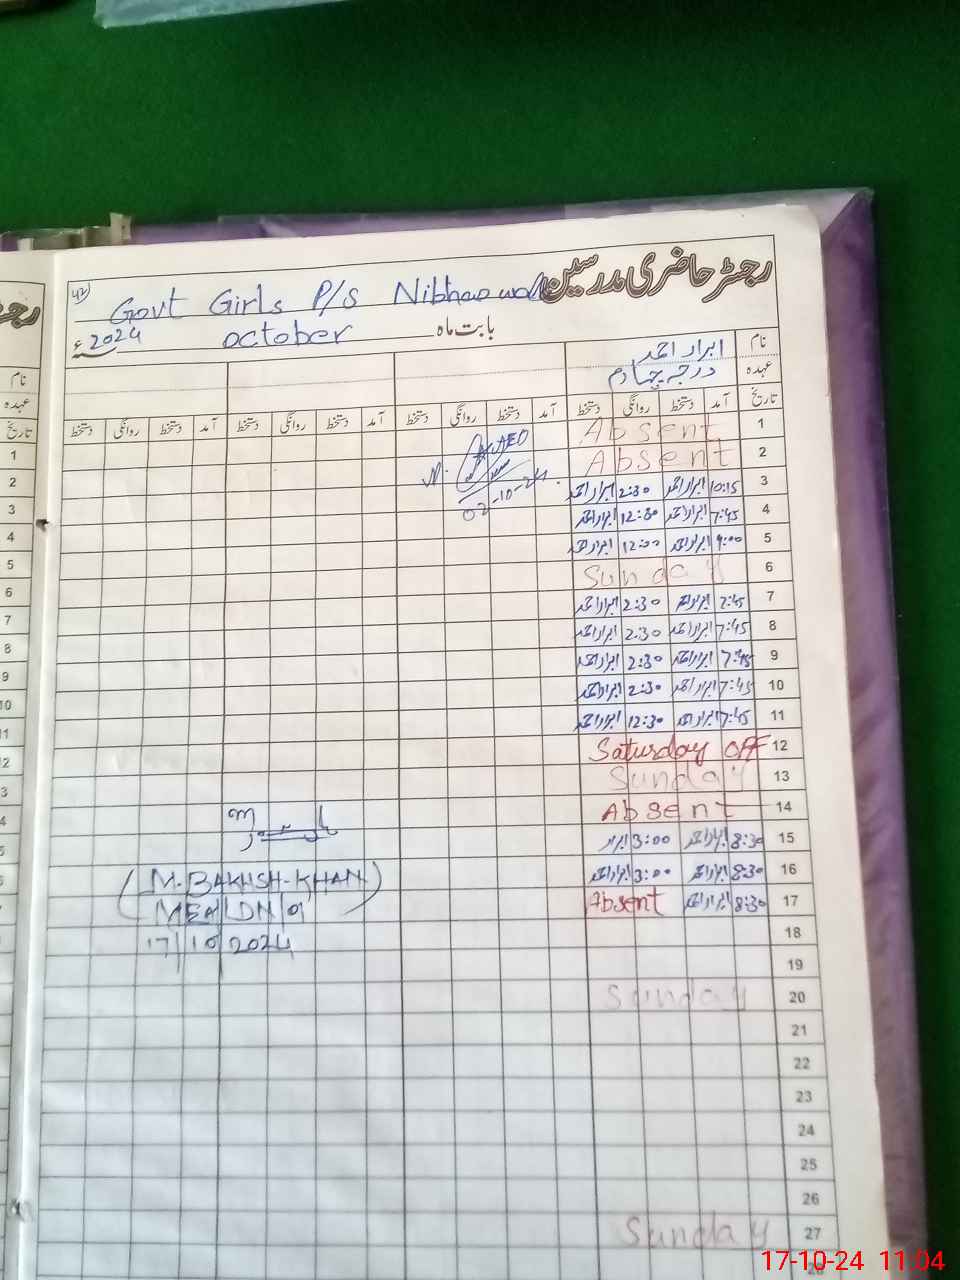 رجسٹر حاضری مدرسین
42
Govt Girls P/s Nibhao wala
بابت ماہ october سنہ 2024ء
نام ابرار احمد
عہدہ درجہ چہارم
تاریخ آمد دستخط روانگی دستخط آمد دستخط روانگی دستخط آمد دستخط روانگی دستخط آمد دستخط روانگی دستخط
1 Absent
2 Absent
AEO
02-10-24
3 10:15 ابرار احمد 2:30 ابرار احمد
4 7:45 ابرار احمد 12:30 ابرار احمد
5 9:00 ابرار احمد 12:00 ابرار احمد
6 Sunday
7 7:45 ابرار احمد 2:30 ابرار احمد
8 7:45 ابرار احمد 2:30 ابرار احمد
9 7:45 ابرار احمد 2:30 ابرار احمد
10 7:45 ابرار احمد 2:30 ابرار احمد
11 7:45 ابرار احمد 12:30 ابرار احمد
12 Saturday OFF
13 Sunday
14 Absent
15 8:30 ابرار احمد 3:00 ابرار
16 8:30 ابرار احمد 3:00 ابرار احمد
17 8:30 ابرار احمد Absent
(M. BAKHSH-KHAN)
MEA LDN 9
17/10/2024
18
19
20 Sunday
21
22
23
24
25
26
27 Sunday
28
رجسٹر
نام
عہدہ
تاریخ
1
2
3
4
5
6
7
8
9
10
17-10-24 11:04